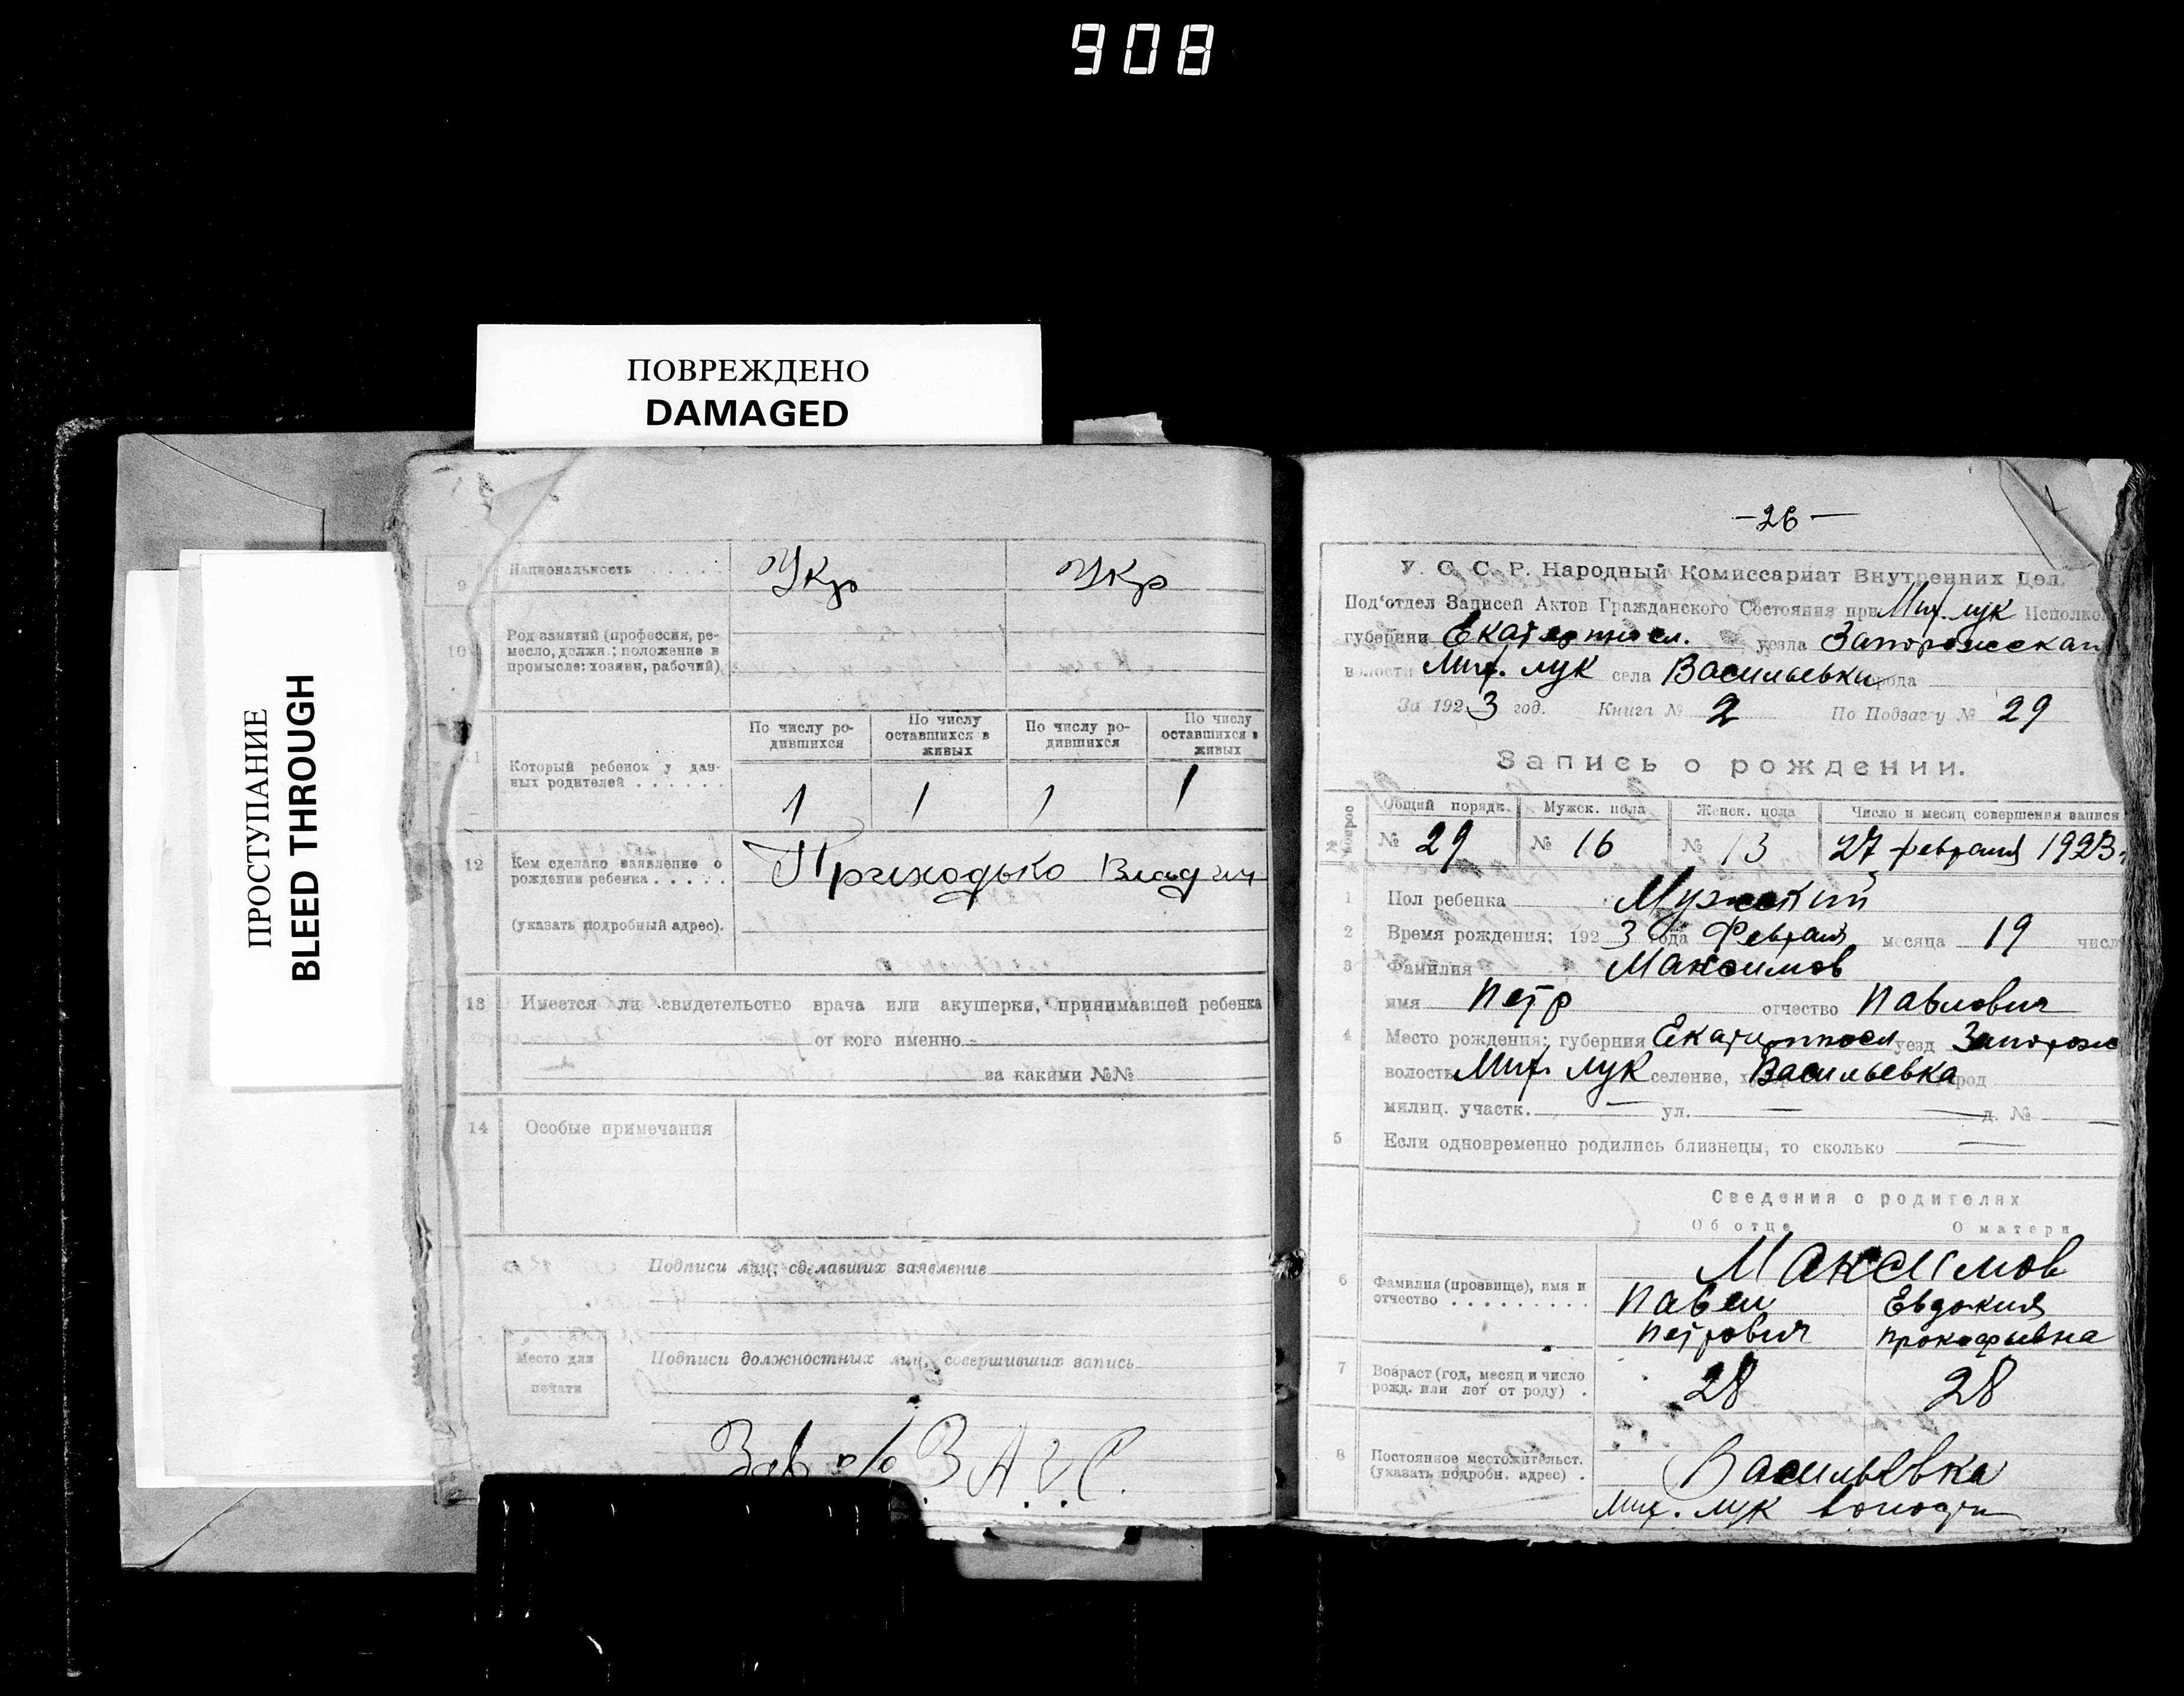 908
ПОВРЕЖДЕНО
DAMAGED
ПРОСТУПАНИЕ
BLEED THROUGH
9 Национальность . . . . . Укр Укр
10 Род занятий (профессия, ре-
месло, должн.; положение в
промысле: хозяин, рабочий)
11 Который ребенок у дан-
ных родителей . . . . . .
По числу ро-
дившихся
По числу
оставшихся в
живых
По числу ро-
дившихся
По числу
оставшихся в
живых
1 1 1 1
12 Кем сделано заявление о
рождении ребенка . . . . .
(указать подробный адрес).
Приходько
13 Имеется ли свидетельство врача или акушерки, принимавшей ребенка
от кого именно
за какими №№
14 Особые примечания
Подписи лиц, сделавших заявление
Место для
печати
Подписи должностных лиц, совершивших запись
Зав п/о ЗАГС.
—26—
У. С. С. Р. Народный Комиссариат Внутренних Дел.
Под'отдел Записей Актов Гражданского Состояния при Мих. лук Исполко
губернии Екатериносл. уезда Запорожскаг
волости Мих. лук села Васильевки города
За 1923 год. Книга № 2 По Подзагсу № 29
Запись о рождении.
№ вопрос
Общий порядк. Мужск. пола Женск. пола Число и месяц совершения записи
№ 29 № 16 № 13 27 февраля 1923
1 Пол ребенка Мужской
2 Время рождения: 1923 года Февраля месяца 19 числ
3 Фамилия Максимов
имя Петр отчество Павлович
4 Место рождения: губерния Екатериносл уезд Запорож
волость Мих. лук селение, Васильевка город
милиц. участк. — ул. — д. № —
5 Если одновременно родились близнецы, то сколько —
Сведения о родителях
Об отце О матери
6 Фамилия (прозвище), имя и
отчество . . . . . . . . . .
Максимов
Павел Евдокия
Петрович Прокофьевна
7 Возраст (год, месяц и число
рожд. или лет от роду) .
28 28
8 Постоянное местожительст.
(указать подробн. адрес) .
Васильевка
Мих. лук волости